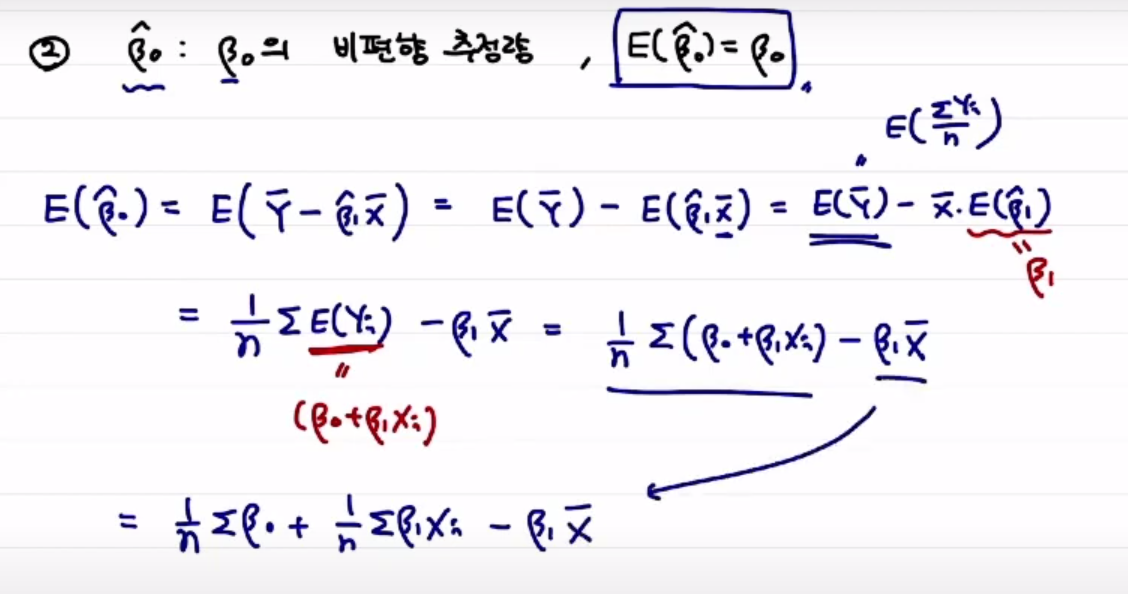 ② β̂₀ : β₀의 비편향 추정량 , E(β̂₀) = β₀
E(ΣYᵢ/n)
"
E(β̂₀) = E(Ȳ - β̂₁x̄) = E(Ȳ) - E(β̂₁x̄) = E(Ȳ) - x̄·E(β̂₁)
"
β₁
= 1/n Σ E(Yᵢ) - β₁x̄ = 1/n Σ(β₀+β₁xᵢ) - β₁x̄
"
(β₀+β₁xᵢ)
= 1/n Σβ₀ + 1/n Σβ₁xᵢ - β₁x̄